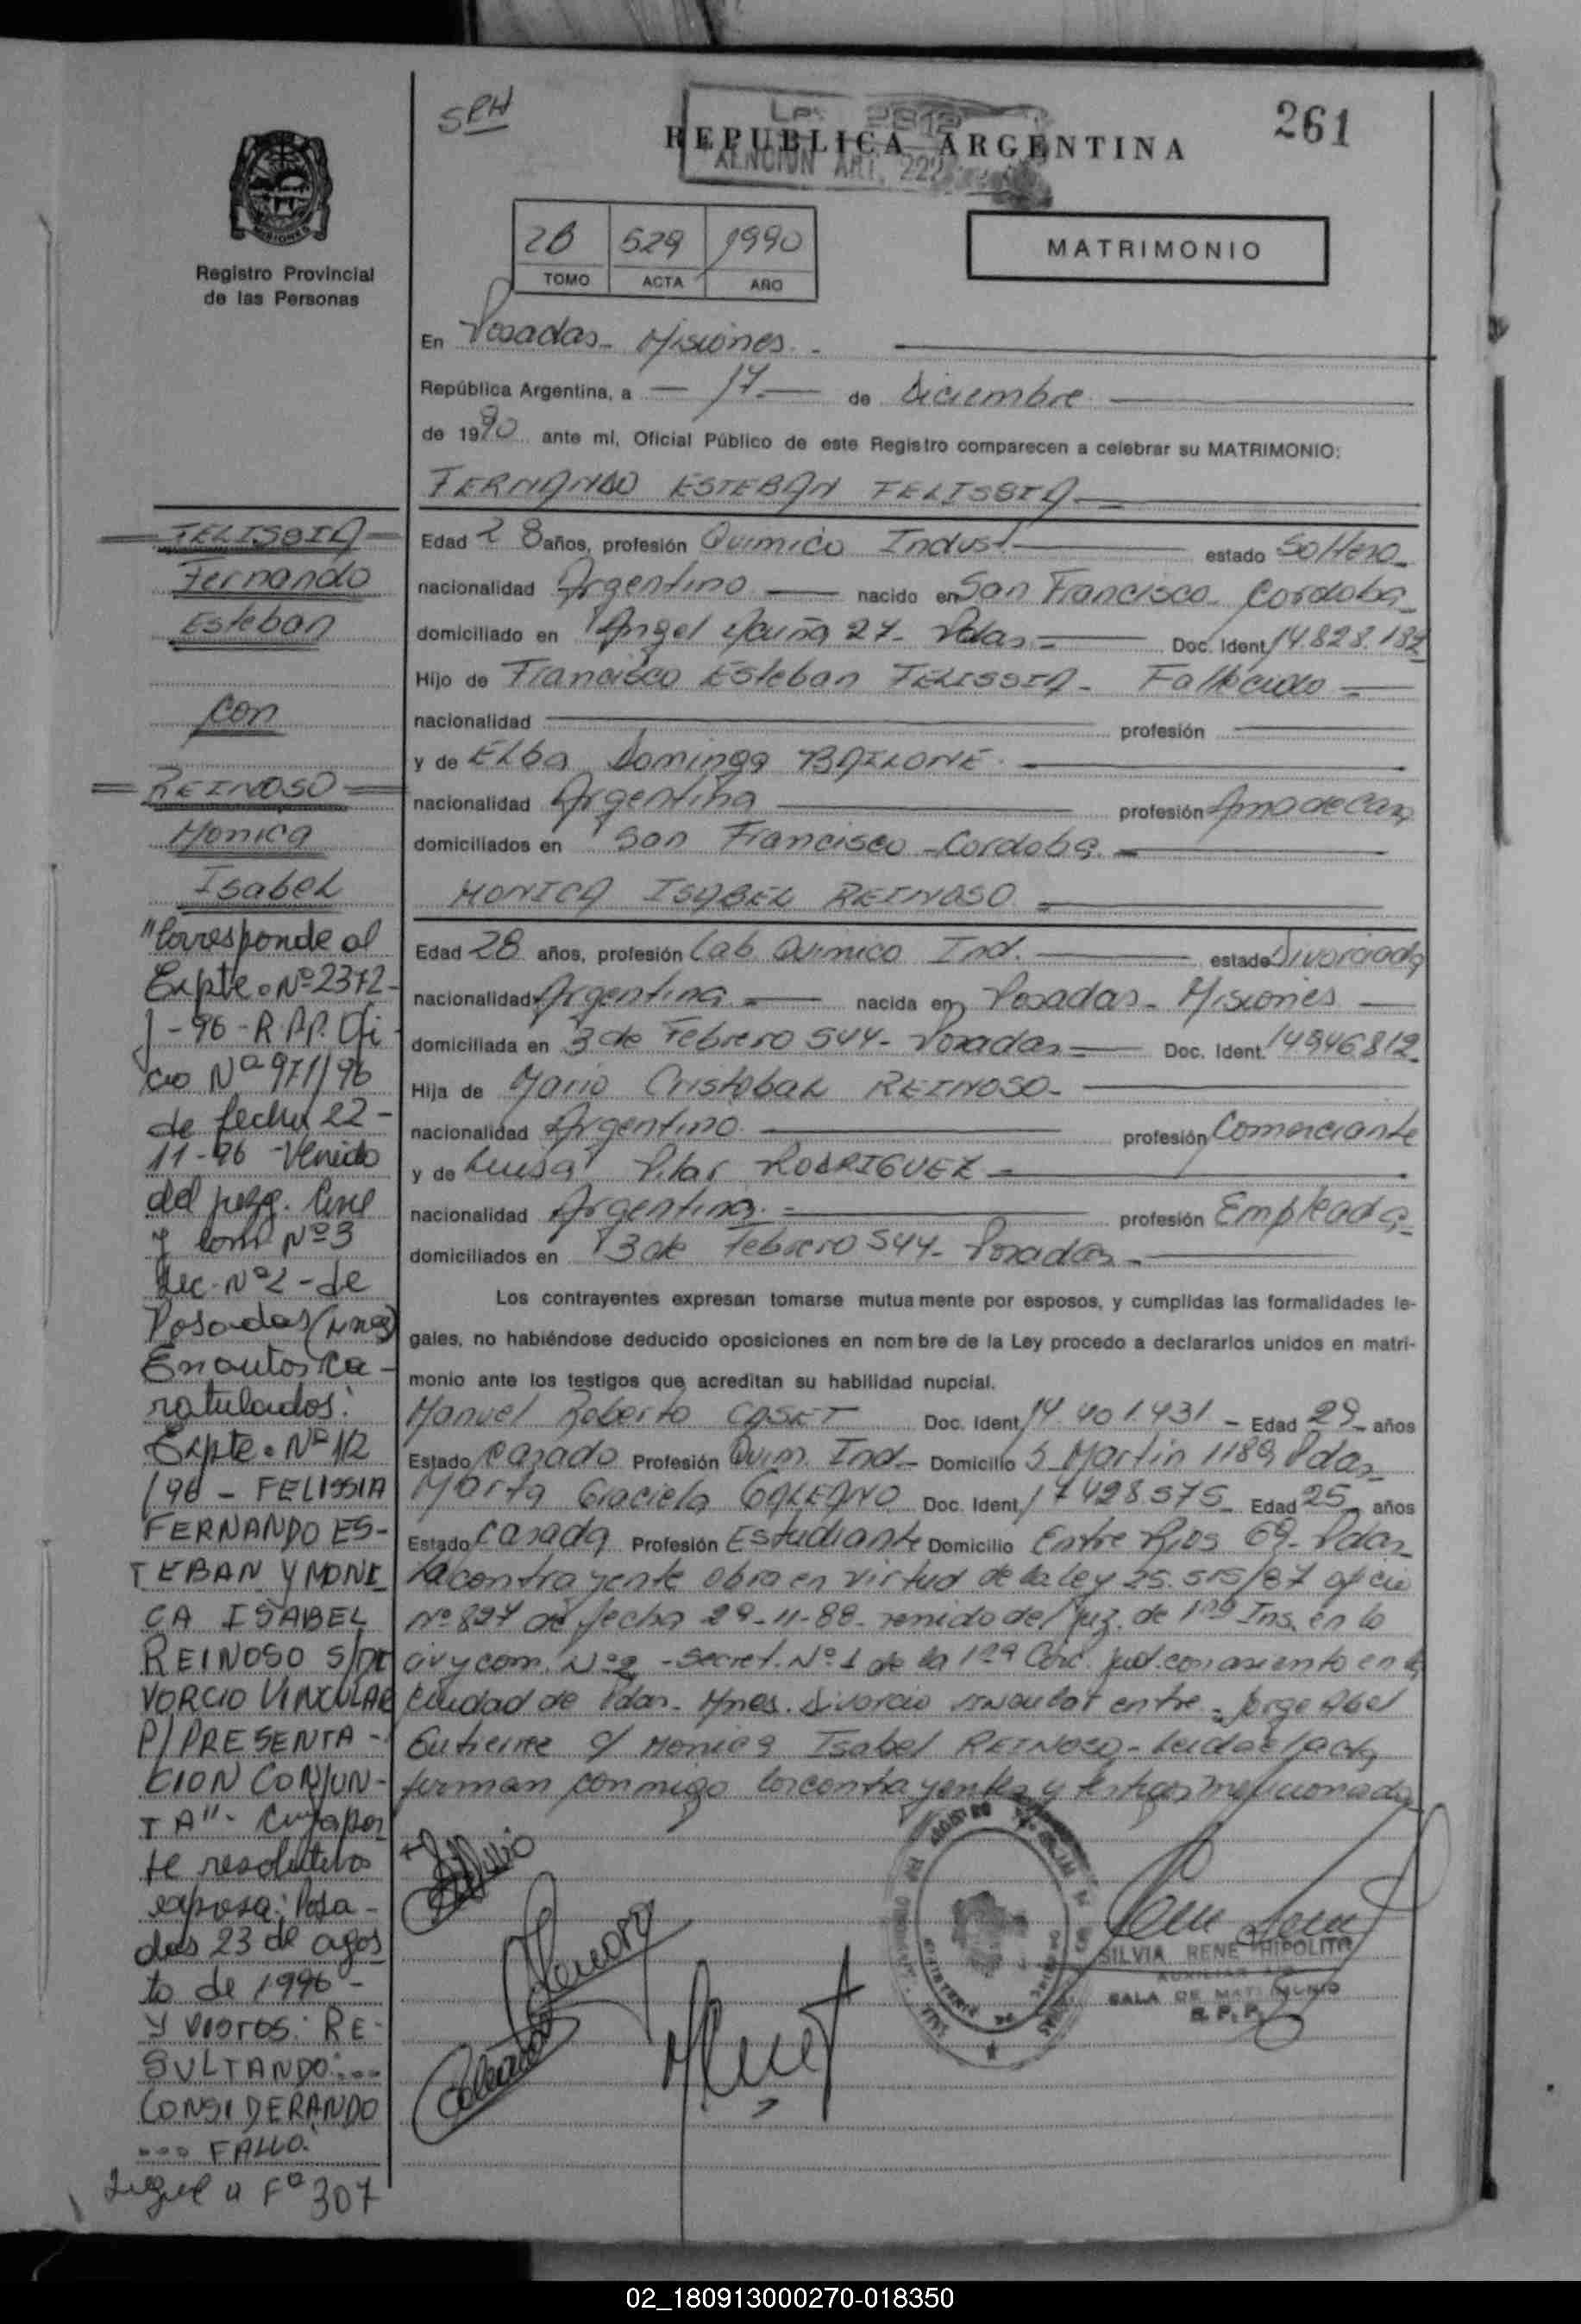 SRH
261
REPUBLICA ARGENTINA
MISIONES
Registro Provincial
de las Personas
2B 529 1990
TOMO ACTA AÑO
MATRIMONIO
En Posadas - Misiones -
República Argentina, a 17 de Diciembre
de 1990 ante mí, Oficial Público de este Registro comparecen a celebrar su MATRIMONIO:
FERNANDO ESTEBAN FELISSIA
Edad 28 años, profesión Quimico Indust. estado Soltero
nacionalidad Argentino nacido en San Francisco - Cordoba
domiciliado en Angel Acuña 27 - Pdas Doc. Ident. 14.828.187
Hijo de Francisco Esteban FELISSIA - Fallecido
nacionalidad profesión
y de Elba Dominga BAILONE
nacionalidad Argentina profesión Ama de Casa
domiciliados en San Francisco - Cordoba
MONICA ISABEL REINOSO
Edad 28 años, profesión Lab. Quimico Ind. estado Divorciada
nacionalidad Argentina nacida en Posadas - Misiones
domiciliada en 3 de Febrero 544 - Posadas Doc. Ident. 14946812
Hija de Mario Cristobal REINOSO
nacionalidad Argentino profesión Comerciante
y de Luisa Pilar RODRIGUEZ
nacionalidad Argentina profesión Empleada
domiciliados en 3 de Febrero 544 - Posadas
Los contrayentes expresan tomarse mutuamente por esposos, y cumplidas las formalidades le-
gales, no habiéndose deducido oposiciones en nombre de la Ley procedo a declararlos unidos en matri-
monio ante los testigos que acreditan su habilidad nupcial.
Manuel Roberto CASET Doc. Ident. 14.401.431 - Edad 29 años
Estado Casado Profesión Quim. Ind. Domicilio S. Martin 1189 Pdas
Marta Graciela GALEANO Doc. Ident. 17428.575 Edad 25 años
Estado Casada Profesión Estudiante Domicilio Entre Rios 69 - Pdas
La contrayente obra en virtud de la ley 25.515/87 oficio
Nº 827 de fecha 29-11-88 - venido del juz. de 1ra Ins. en lo
civ y com. Nº 2 - Secret. Nº 1 de la 1ra Circ. jud. con asiento en la
Ciudad de Pdas - Mnes. Divorcio vincular entre - Jorge Abel
Gutierrez c/ Monica Isabel REINOSO - Leida el acta
firman conmigo los contrayentes y testigos mencionados
SILVIA RENE HIPOLITO
SALA DE MATRIMONIO
R.P.P.
FELISSIA
Fernando
Esteban
con
REINOSO
Monica
Isabel
"Corresponde al
Expte. Nº 2372-
J-96-R.P.P. Ofi-
cio Nº 971/96
de fecha 22-
11-96 - Venido
del juzg. Civil
y Com Nº 3
Sec. Nº 2 - de
Posadas (Mnes)
En autos ca-
ratulados:
Expte. Nº 112
/96 - FELISSIA
FERNANDO ES-
TEBAN Y MONI
CA ISABEL
REINOSO S/DI
VORCIO VINCULAR
P/PRESENTA-
CION CONJUN-
TA" - Cuya par
te resolutiva
expresa: Posa-
das 23 de agos
to de 1996 -
Y VISTOS: RE-
SULTANDO:...
CONSIDERANDO
... FALLO:
Sigue a Fº 307
02_180913000270-018350